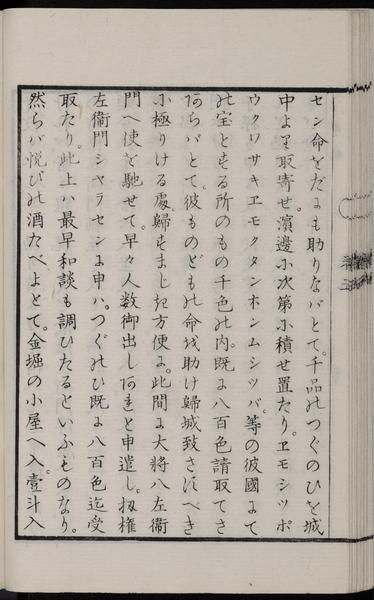 セン命をだにも助りなバとて。千品のつぐのひを城
中より取寄せ。濱邊に次第に積せ置たり。ヱモシツポ
ウクワサキヱモクタンネンムシツバ。等の彼國にて
の宝とする所のもの千色の内。既に八百色請取てさ
あらバとて。彼ものどもの命を助け歸城致さすべき
に極りける處。歸すまじき方便に。此間に大將八左衞
門へ使を馳せて。早々人数御出しあれと申遣し。扨権
左衞門シヤラセンに申ハ。つぐのひ既に八百色迄受
取たり。此上ハ最早和談も調ひたるといふものなり。
然らバ悦びの酒たべよとて。金堀の小屋へ入。壹斗入